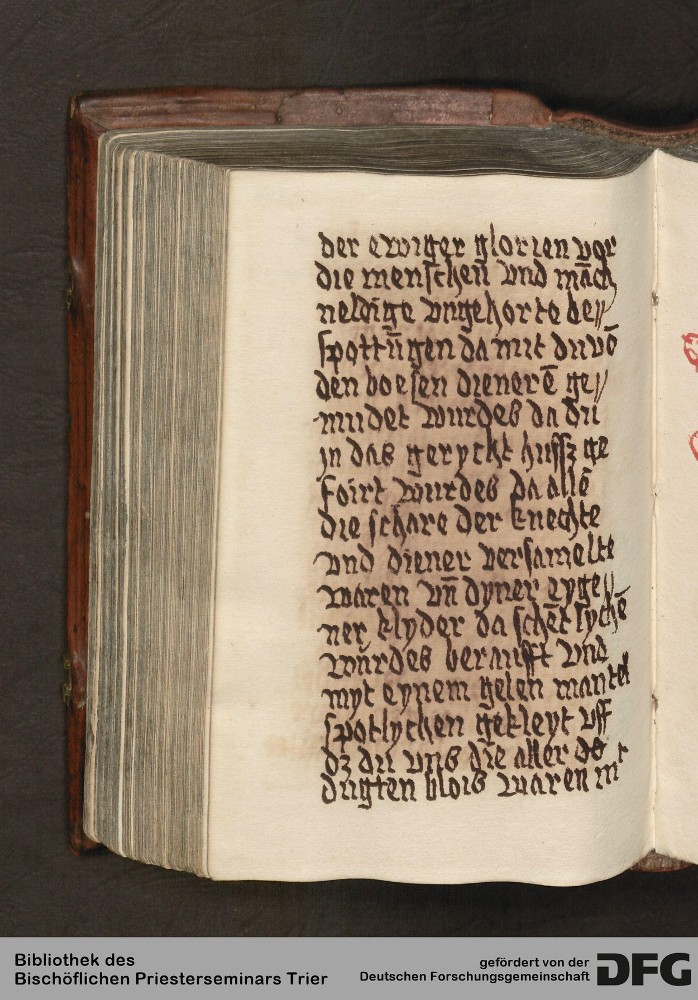 der ewiger glorien vor
die menschen vnd mãch
neldige vngehorte be//
spottũgen da mit du võ
den boesen dienerẽ ge//
mudet wurdes da du
jn das gerycht huſſz ge
foirt wurdes da allẽ
die schare der knechte
vnd diener versamelte
waren vñ dyner eyge//
ner klyder da schẽtlychẽ
wurdes beraufft vnd
myt eynem gelen mantel
spotlychen gekleyt vff
dz du vns die aller do
dugten blois waren mt
Bibliothek des
Bischöflichen Priesterseminars Trier
gefördert von der
Deutschen Forschungsgemeinschaft
DFG